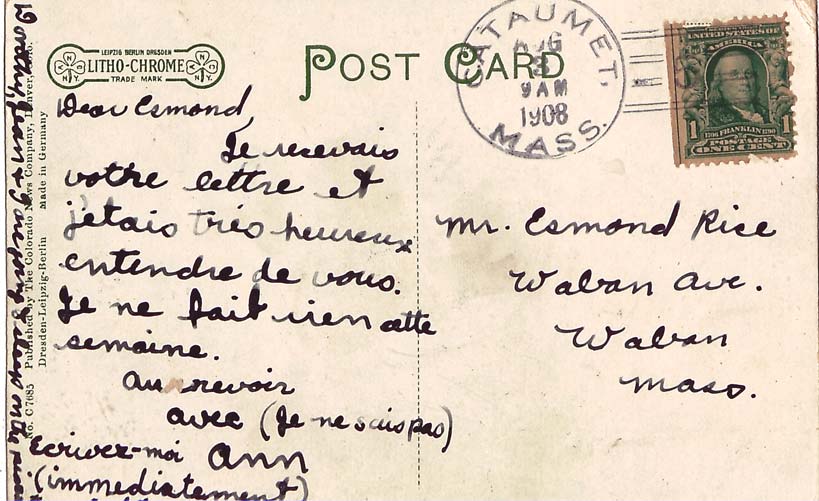 LEIPZIG BERLIN DRESDEN
LITHO-CHROME
TRADE MARK
POST CARD
CATAUMET,
AUG
3
9 AM
1908
MASS.
UNITED STATES OF
AMERICA
1 1
1706 FRANKLIN 1790
POSTAGE
ONE CENT
Dear Esmond,
Je recevais
votre lettre et
j'etais très heureux
entendre de vous.
Je ne fait rien cette
semaine.
au revoir
avec (Je ne sais pas)
Ecrivez-moi Ann
(immediatement)
Mr. Esmond Rice
Waban Ave.
Waban
Mass.
Dorothy, Jean & I are going on the
No. C7685 Published by The Colorado News Company, Denver,
Dresden-Leipzig-Berlin Made in Germany